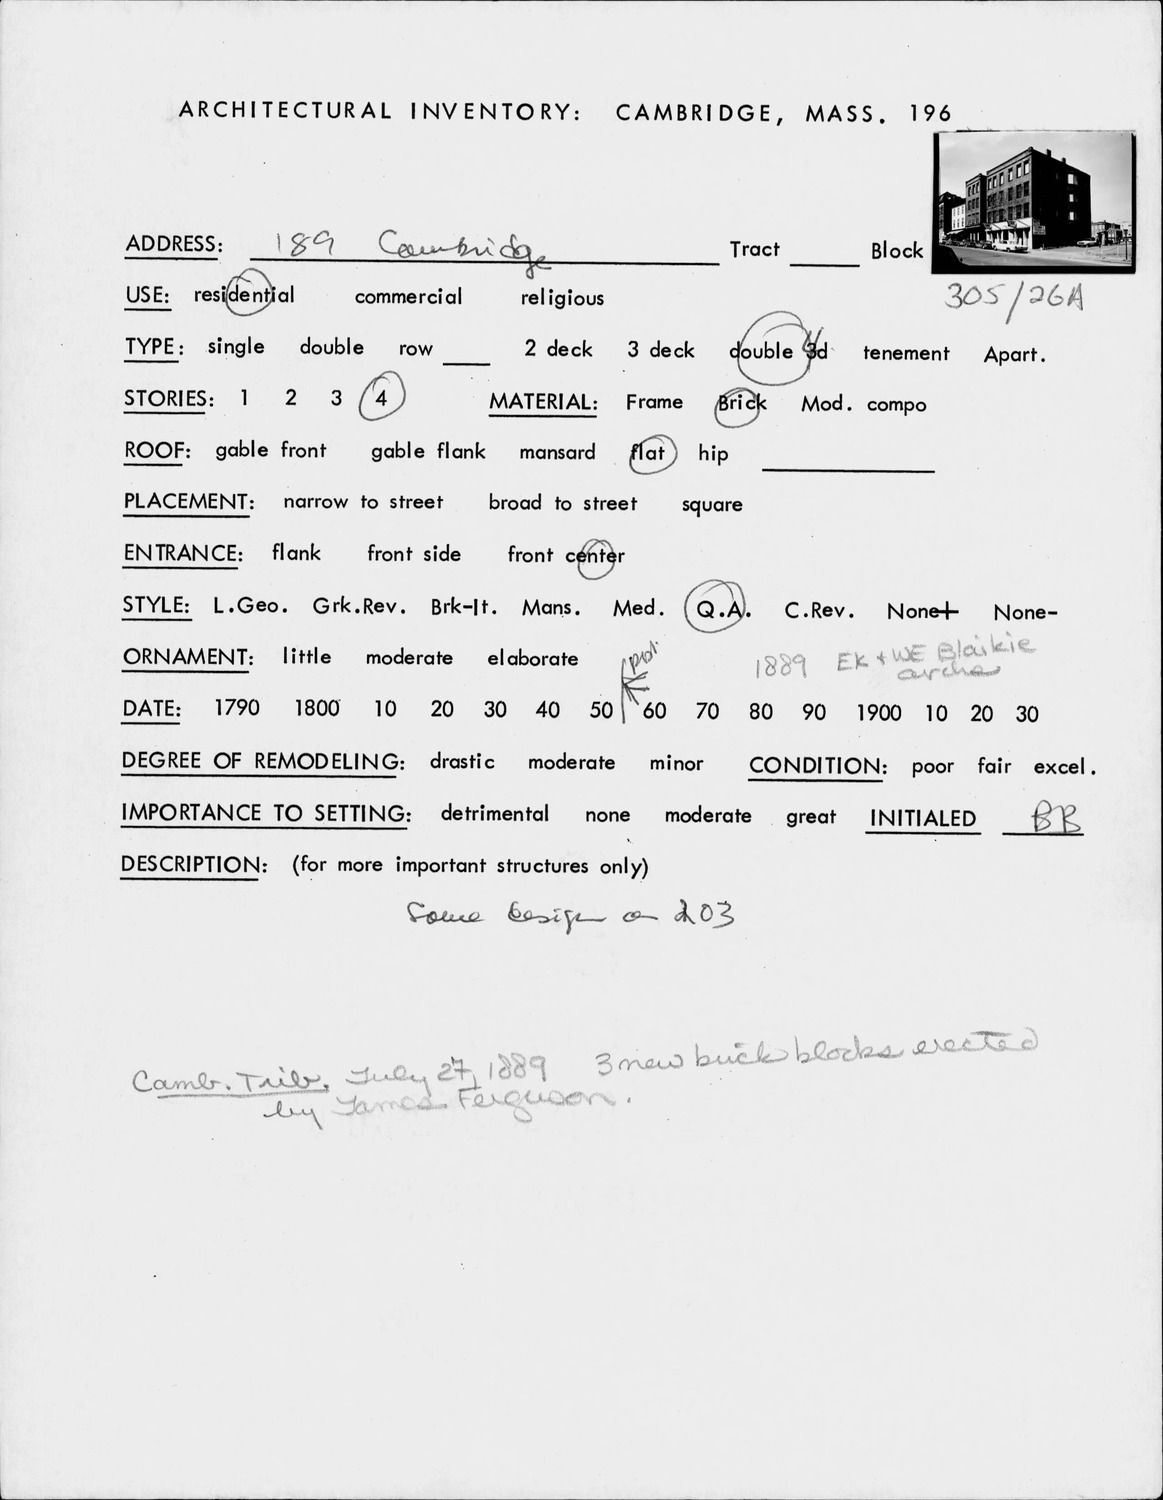 ARCHITECTURAL INVENTORY: CAMBRIDGE, MASS. 196
ADDRESS: 189 Cambridge Tract Block
305/26A
USE: residential commercial religious
TYPE: single double row 2 deck 3 deck double 3d 4 tenement Apart.
STORIES: 1 2 3 4 MATERIAL: Frame Brick Mod. compo
ROOF: gable front gable flank mansard flat hip
PLACEMENT: narrow to street broad to street square
ENTRANCE: flank front side front center
STYLE: L.Geo. Grk.Rev. Brk-It. Mans. Med. Q.A. C.Rev. None+ None-
ORNAMENT: little moderate elaborate 1889 EK + WE Blaikie
archs
DATE: 1790 1800 10 20 30 40 50 60 70 80 90 1900 10 20 30
DEGREE OF REMODELING: drastic moderate minor CONDITION: poor fair excel.
IMPORTANCE TO SETTING: detrimental none moderate great INITIALED BB
DESCRIPTION: (for more important structures only)
Same design as 203
Camb. Trib. July 27, 1889 3 new brick blocks erected
by James Ferguson.